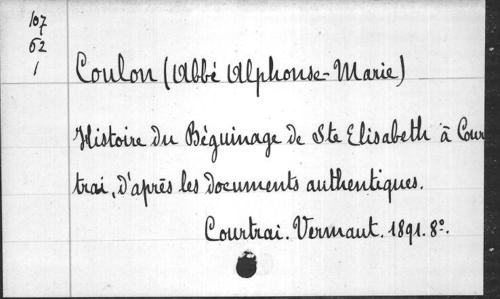 107
62
1
Coulon (Abbé Alphonse-Marie)
Histoire du Béguinage de Ste Elisabeth à Cour
trai, d'après les documents authentiques.
Courtrai. Vermaut. 1891. 8°.